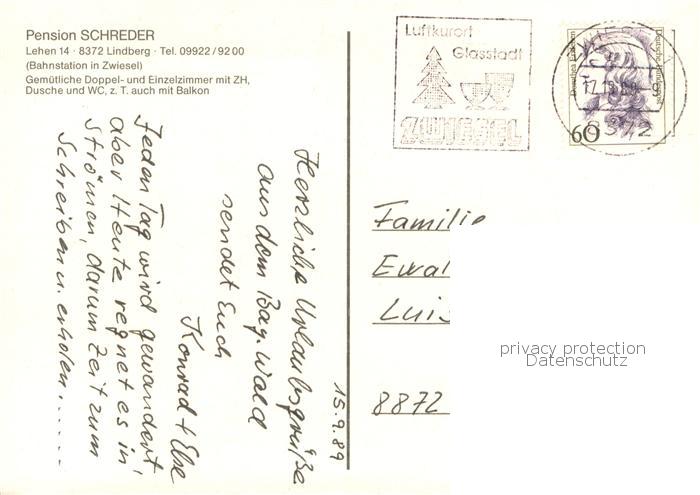 Pension SCHREDER
Lehen 14 · 8372 Lindberg · Tel. 09922/9200
(Bahnstation in Zwiesel)
Gemütliche Doppel- und Einzelzimmer mit ZH,
Dusche und WC, z. T. auch mit Balkon
Luftkurort
Glasstadt
ZWIESEL
Deutsche Bundespost
60
8372
15.9.89
Herzliche Urlaubsgrüße
aus dem Bay. Wald
sendet Euch
Konrad + Else
Jeden Tag wird gewandert,
aber Heute regnet es in
Strömen, darum Zeit zum
Schreiben u. erholen......
Familie
Ewal
Luis
8872
privacy protection
Datenschutz